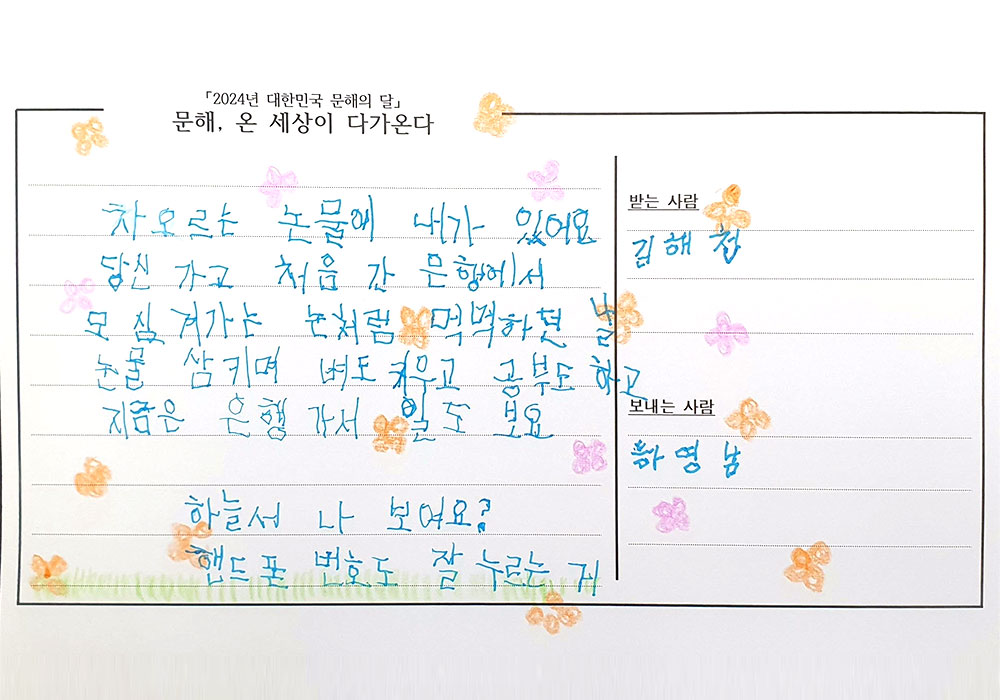 「2024년 대한민국 문해의 달」
문해, 온 세상이 다가온다
차오르는 논물에 내가 있어요
당신 가고 처음 간 은행에서
모 심겨가는 논처럼 먹먹하던 날
눈물 삼키며 벼도 키우고 공부도 하고
지금은 은행 가서 일도 보요
하늘서 나 보여요?
핸드폰 번호도 잘 누르는 거
받는 사람
김해청
보내는 사람
하영남